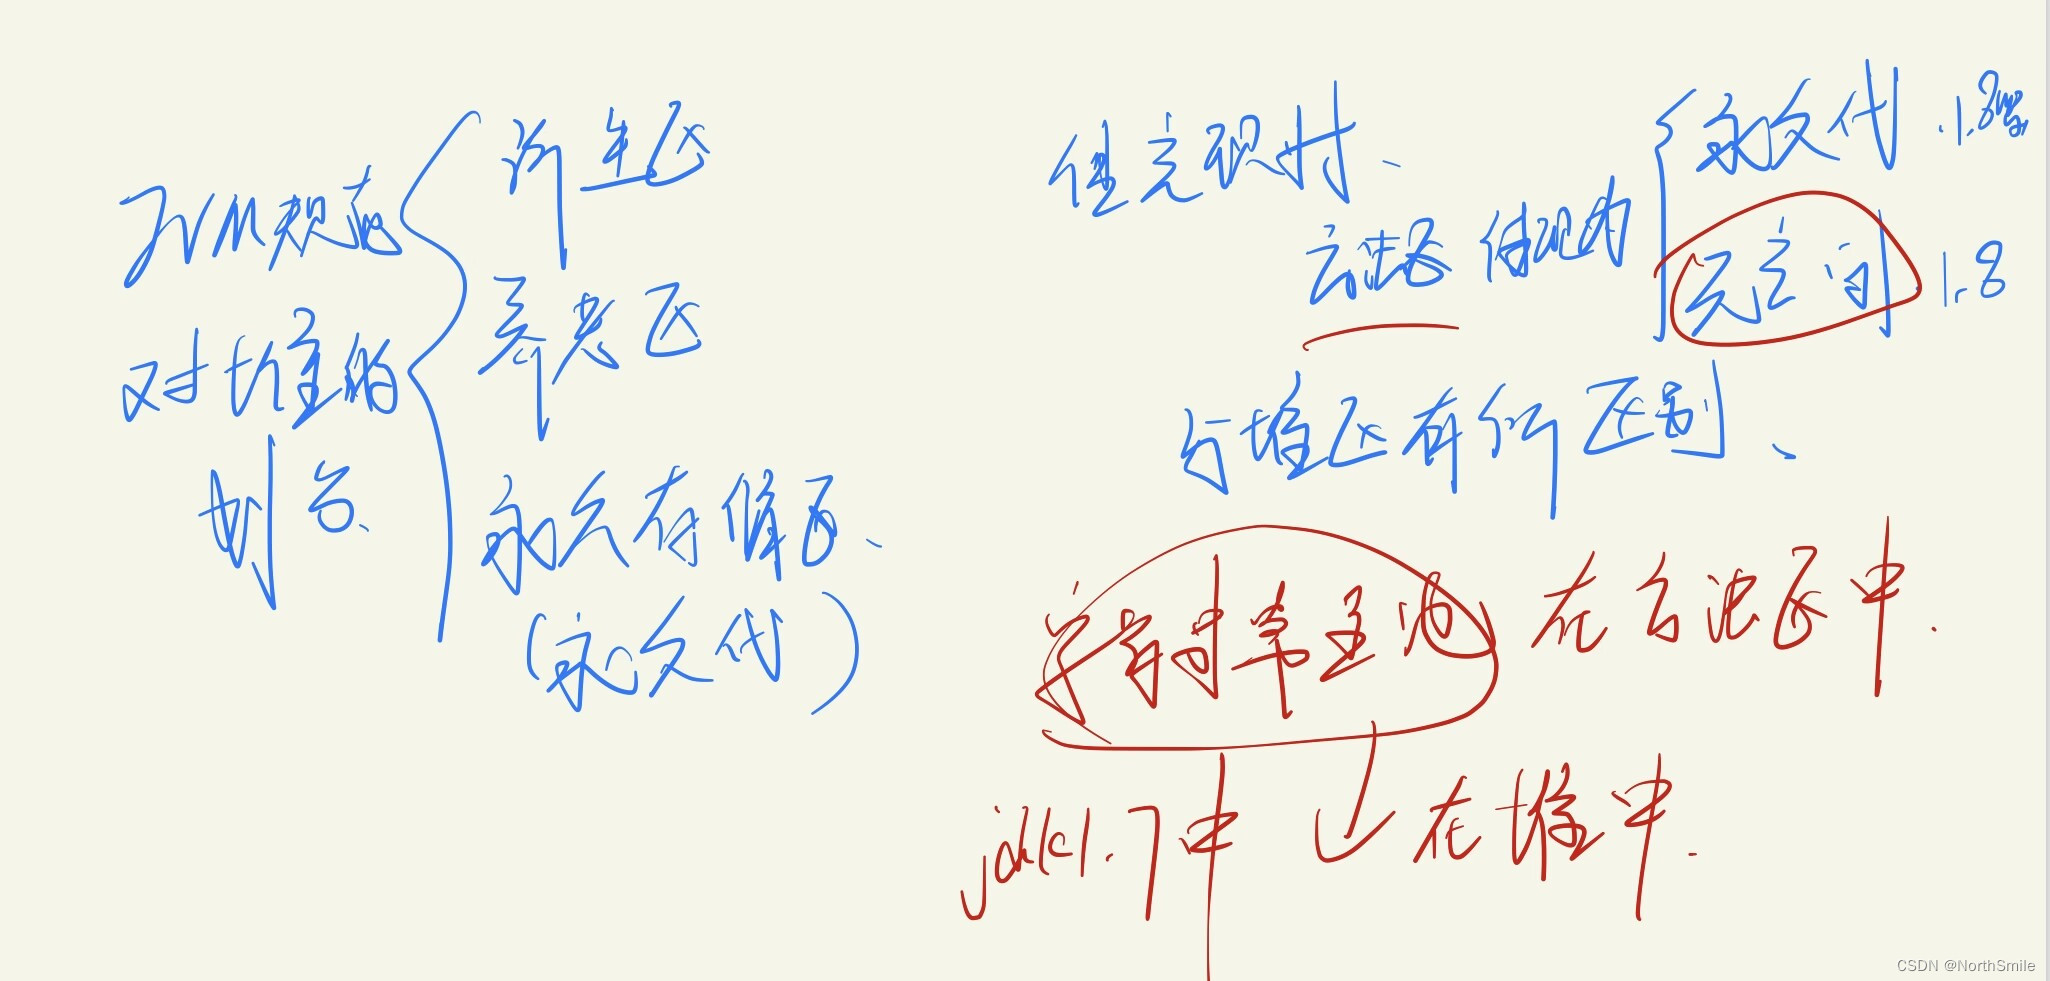 JVM规范
对堆的
划分、
新生区
养老区
永久存储区、
(永久代)
但实现时、
方法区 体现为
永久代 .1.8前
元空间 1.8
与堆区有所区别、
字符串常量池 在方法区中.
jdk1.7中 在堆中.
CSDN @NorthSmile